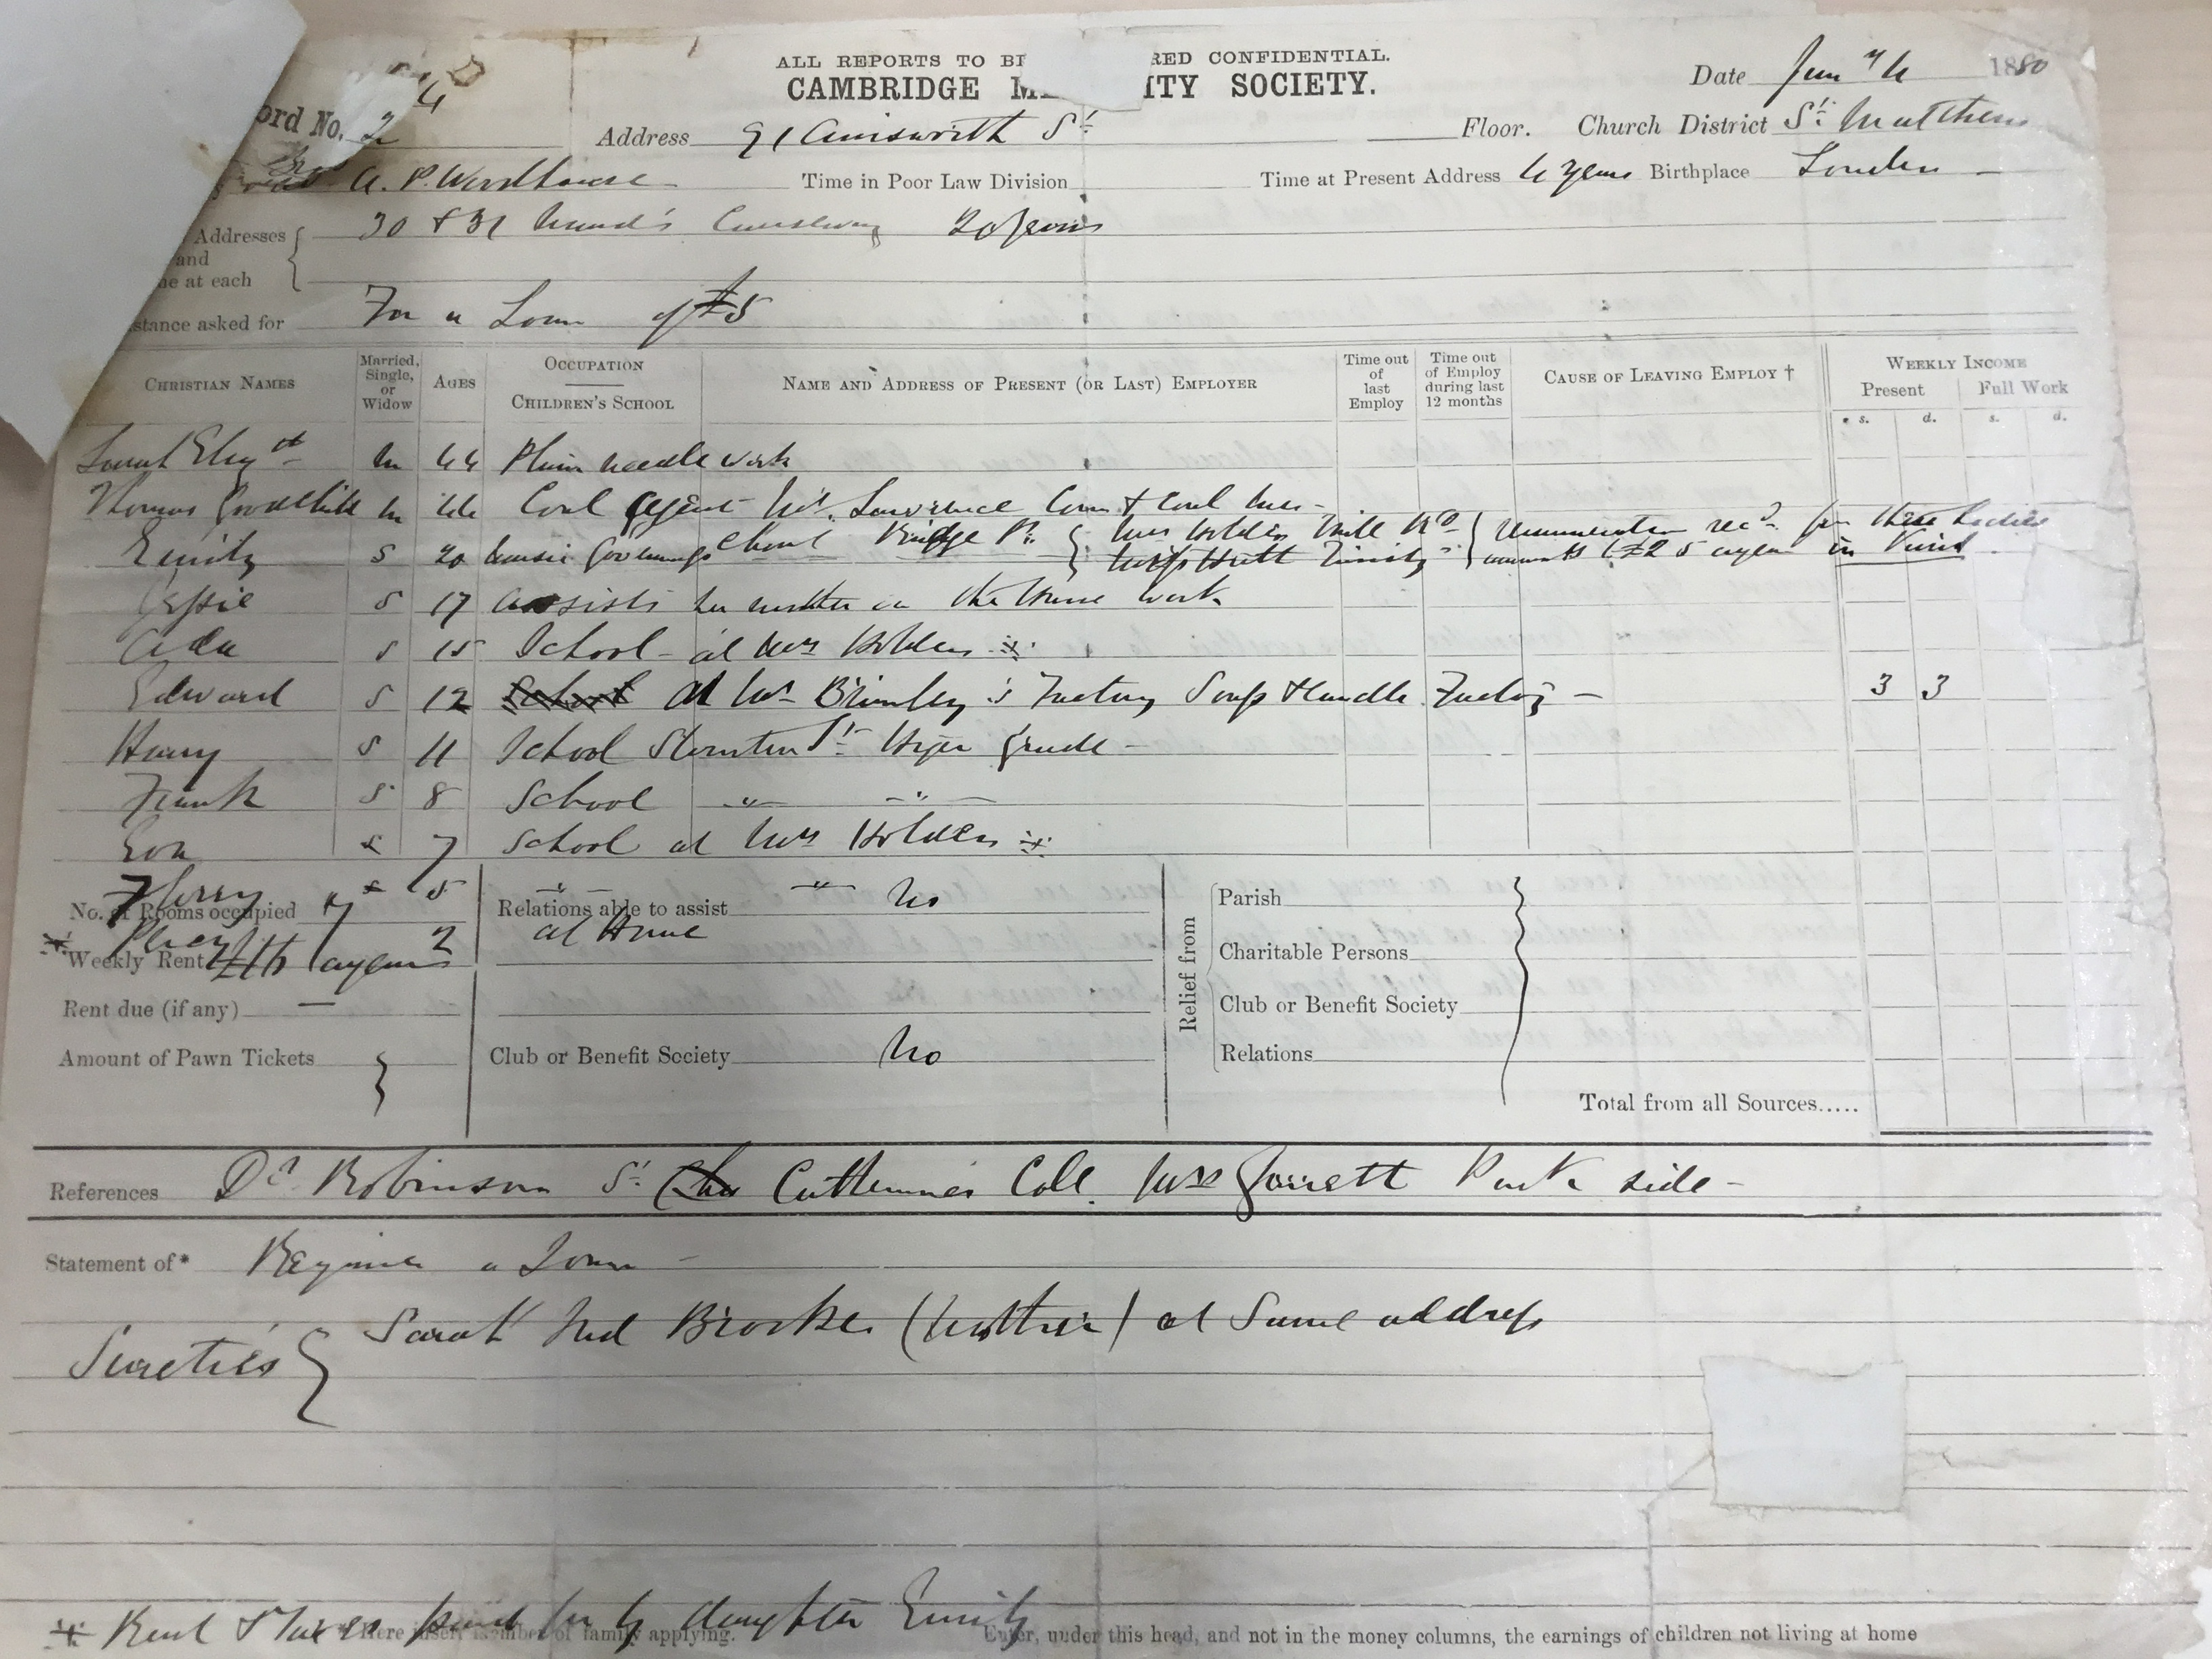 ALL REPORTS TO BE RED CONFIDENTIAL.
CAMBRIDGE M ITY SOCIETY.
Date Jan 1880
ord No. 24 Address 91 Ainsworth St. Floor. Church District St. Matthews
A. P. Woodhouse Time in Poor Law Division Time at Present Address 4 years Birthplace London
Addresses and ne at each 30 & 31 Maid's Causeway 20 years
stance asked for For a Loan of £5
CHRISTIAN NAMES Married, Single, or Widow AGES OCCUPATION CHILDREN'S SCHOOL NAME AND ADDRESS OF PRESENT (OR LAST) EMPLOYER Time out of last Employ Time out of Employ during last 12 months CAUSE OF LEAVING EMPLOY † WEEKLY INCOME Present Full Work
s. d. s. d.
Sarah Elizth m 44 Plain needle work
Thomas Goodchild m 44 Coal Agent Mr. Lawrence Corn & Coal Mer-chant Bridge St.
Emily S 20 Music Governess Mrs Holden Mill Rd Miss Hutt Trinity St remuneration recd. from these Ladies amounts £25 a year in Kind
Jessie S 17 assists her mother in the House work
Ada S 15 School at Mrs Holdens
Edward S 12 School At Mr Brimley's Factory Soap & Candle Factory 3 3
Harry S 11 School Sturton St. Higher Grade
Frank S 8 School " "
Eva S 7 School at Mrs Holdens
Florry S 5 " "
Percy 2 at Home
No. of Rooms occupied 7 Relations able to assist No
Weekly Rent £16 a year
Rent due (if any) —
Amount of Pawn Tickets Club or Benefit Society No
Relief from Parish
Charitable Persons
Club or Benefit Society
Relations
Total from all Sources.....
References Dr. Robinson St. Catherines Coll. Mrs Garrett Park side
Statement of* Require a Loan
Sureties Sarah Brookes (Mother) at Same address
Rent & Taxes paid for by daughter Emily
* Here insert Number of family applying. Enter, under this head, and not in the money columns, the earnings of children not living at home